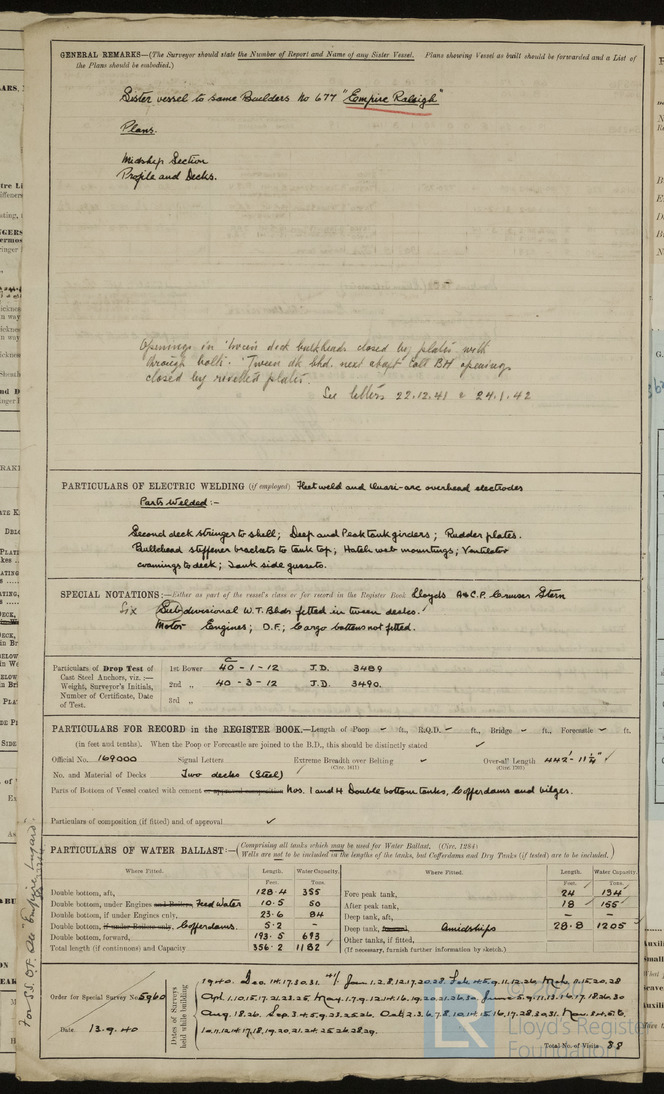 GENERAL REMARKS—(The Surveyor should state the Number of Report and Name of any Sister Vessel. Plans showing Vessel as built should be forwarded and a List of
the Plans should be embodied.)
Sister vessel to same Builders No 677 "Empire Raleigh"
Plans.
Midship Section
Profile and Decks.
Openings in 'tween deck bulkheads closed by plates with
through bolts. 'Tween dk bhd. next abaft Coll BH openings
closed by rivetted plates.
See letters 22.12.41 & 24.1.42
PARTICULARS OF ELECTRIC WELDING (if employed) Fleetweld and Quasi-arc overhead electrodes
Parts Welded:-
Second deck stringer to shell; Deep and Peak tank girders; Rudder plates.
Bulkhead stiffener brackets to tank top; Hatch web mountings; Ventilator
coamings to deck; Tank side gussets.
SPECIAL NOTATIONS:—Either as part of the vessel's class or for record in the Register Book Lloyds A&C.P. Cruiser Stern
Six Subdivisional W.T. Bhds fitted in tween decks.
Motor Engines; O.F.; Cargo battens not fitted.
Particulars of Drop Test of
Cast Steel Anchors, viz.:—
Weight, Surveyor's Initials,
Number of Certificate, Date
of Test.
1st Bower 40 - 1 - 12 J.D. 3489
2nd „ 40 - 3 - 12 J.D. 3490.
3rd „
PARTICULARS FOR RECORD in the REGISTER BOOK.—Length of Poop ft., R.Q.D. ft., Bridge ft., Forecastle ft.
(in feet and tenths). When the Poop or Forecastle are joined to the B.D., this should be distinctly stated
Official No. 169000 Signal Letters Extreme Breadth over Belting Over-all Length 442' - 11¼"
(Circ. 1611) (Circ. 1703)
No. and Material of Decks Two decks (Steel)
Parts of Bottom of Vessel coated with cement or approved composition Nos. 1 and 4 Double bottom tanks, Cofferdams and bilges.
Particulars of composition (if fitted) and of approval
PARTICULARS OF WATER BALLAST:—(Comprising all tanks which may be used for Water Ballast. (Circ. 1284)
Wells are not to be included in the lengths of the tanks, but Cofferdams and Dry Tanks (if tested) are to be included.)
Where Fitted. Length. Water Capacity. Where Fitted. Length. Water Capacity.
Feet. Tons. Feet. Tons.
Double bottom, aft, 128.4 355 Fore peak tank, 24 134
Double bottom, under Engines and Boilers, Feed Water 10.5 50 After peak tank, 18 155
Double bottom, if under Engines only, 23.6 84 Deep tank, aft, - -
Double bottom, if under Boilers only, Cofferdams. 5.2 - Deep tank, forward, Amidships 28.8 1205
Double bottom, forward, 193.5 693 Other tanks, if fitted,
Total length (if continuous) and Capacity 356.2 1182 (If necessary, furnish further information by sketch.)
Order for Special Survey No. 5960
Date 13.9.40
Dates of Surveys
held while building
1940. Dec. 14.17.30.31 41/ Jan 1.2.8.12.17.20.28 Feb 4.5.9.11.12.26. Mch.
June 5.9.11.13.16.17.18.26.30
Aug. 18.26. Sep. 3.4.5.9.23.25.26. Oct. 2.3.6.7.8.10.14.15.16.17.28.30.31 Nov.
Total No. of Visits 88
For S.S. OF. See "Empire Lugard".
© 2020
Lloyd's Register
Foundation
LR